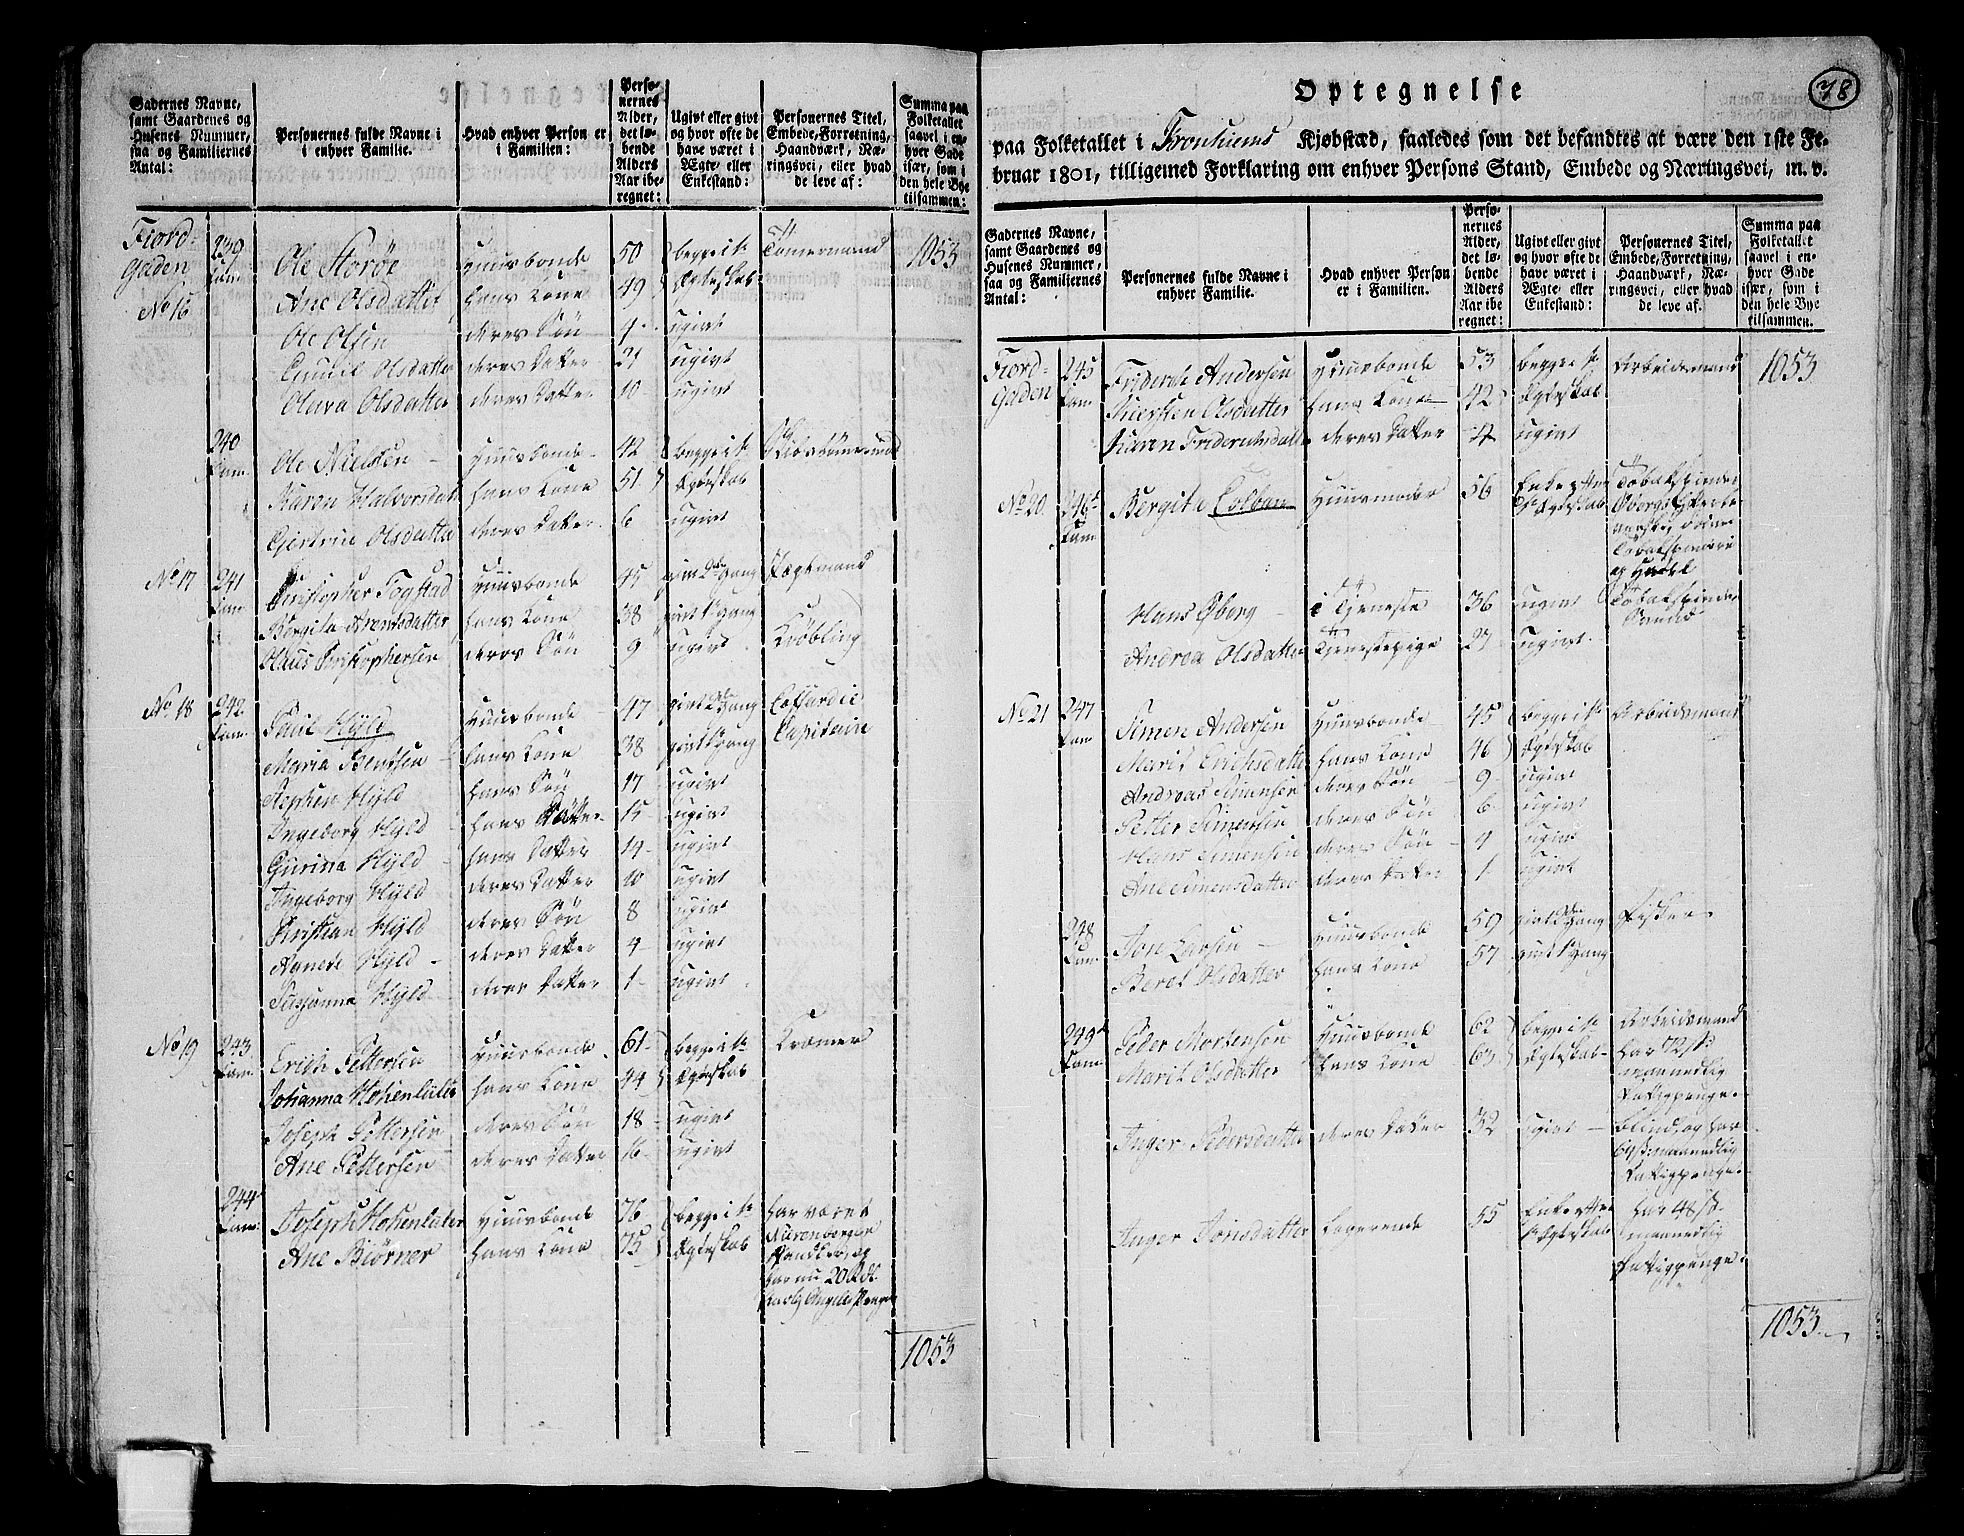 78
Gadernes Navne, samt Gaardenes og Husenes Nummer, saa og Familiernes Antal:
Personernes fulde Navne i i enhver Familie.
Hvad enhver Person er i Familien:
Personernes Alder, det løbende Alders Aar iberegnet:
Ugivt eller givt og hvor ofte de have været i Ægte- eller Enkestand:
Personernes Titel, Embede, Forretning, Haandværk, Næringsvei, eller hvad de leve af:
Summa paa Folketallet saavel i enhver Gade især, som i den hele Bye tilsammen:
Fiord-Gaden No 16 239 Fam: Ole Storøe Huusbonde 50 begge i 1te Tömermand 1053
Ane Olsdatter hans Kone 49 Ægteskab
Ole Olsen deres Sön ugivt
Gunnil Olsdatter deres Datter 21 ugivt
Oleva Olsdatter deres Datter 10 ugivt
240 Fam: Ole Nielsen Huusbonde 42 begge i 1te
Karen Halvorsdatt hans Kone 51 Ægteskab
Giertrue Olsdatter deres Datter 6 ugivt
No 17 241 Fam: Christopher Fogstad Huusbonde 45 givt 2den Gang Vægtmand
Bergita Arentsdatter hans Kone 38 givt 1te Gang
Claus Christophersen deres Sön 9 ugivt Kröbling
No 18 242 Fam: Paul Hyld Huusbonde 47 givt 2den Gang Coffardie Capitain
Maria Bentsen hans Kone 38 givt 1te Gang
Stephen Hyld hans Sön 17 ugivt
Ingeborg Hyld hans Datter 15 ugivt
Gurina Hyld hans Datter 14 ugivt
Ingeborg Hyld deres Datter 10 ugivt
Christian Hyld deres Sön 8 ugivt
Agnete Hyld deres Datter 4 ugivt
Susanna Hyld deres Datter 1 ugivt
No 19 243 Fam: Erich Pettersen Huusbonde 61 begge i 1te Kræmer
Johanna Hohenlüter hans Kone 44 Ægteskab
Joseph Pettersen deres Sön 18 ugivt
Ane Pettersen deres Datter 16 ugivt
244 Fam: Joseph Hohenlüter Huusbonde 76 begge i 1te har været Nürenberger
Ane Biörner hans Kone 75 Ægteskab og har nu 20 Rdl.
1053
Optegnelse
paa Folketallet i Tronhiems Kjøbstæd, saaledes som det befandtes at være den 1ste Februar 1801, tilligemed Forklaring om enhver Persons Stand, Embede og Næringsvei, m. v.
Gadernes Navne, samt Gaardenes og Husenes Nummer, saa og Familiernes Antal:
Personernes fulde Navne i enhver Familie.
Hvad enhver Person er i Familien.
Personernes Alder, det løbende Alders Aar iberegnet:
Ugivt eller givt og hvor ofte de have været i Ægte- eller Enkestand:
Personernes Titel, Embede, Forretning, Haandværk, Næringsvei, eller hvad de leve af.
Summa paa Folketallet saavel i enhver Gade især, som i den hele Bye tilsammen.
Fiord-Gaden 245 Fam Friderch Andersen Huusbonde 53 begge i 1te Arbeidsmand 1053
Kiersten Olsdatter hans Kone 42 Ægteskab
Karen Friderichsdatt deres Datter 4 ugivt
No 20 246 Fam Bergite Colban Huusmoder 56 Enke efter 1te Ægteskab
Hans Øberg i Tjeneste 36 ugivt Tobakspinder
Andrea Olsdatter Tjenestepige 27 ugivt
No 21 247 Fam Simen Andersen Huusbonde 45 begge i 1te Arbeidsmand
Marit Erichsdatter hans Kone 46 Ægteskab
Andreas Simensen deres Sön 9 ugivt
Petter Simensen deres Sön 6 ugivt
Hans Simensen deres Sön 4 ugivt
Ane Simensdatter deres Datter 1 ugivt
248 Fam Jon Larsen Huusbonde 59 givt 2den Gang Fisker
Beret Olsdatter hans Kone 57 givt 1te Gang
249 Fam Peder Mortensen Huusbonde 62 begge i 1te Arbeidsmand
Marit Olsdatter hans Kone 63 Ægteskab har 72 ß maanedlig Fattigpenge.
Inger Pedersdatter deres Datter 32 ugivt blind, og har maanedlig Fattigpenge.
Inger Jonsdatter Logerende 55 Enke efter 1 Ægteskab har 48 ß maanedlig Fattigpenge.
1053